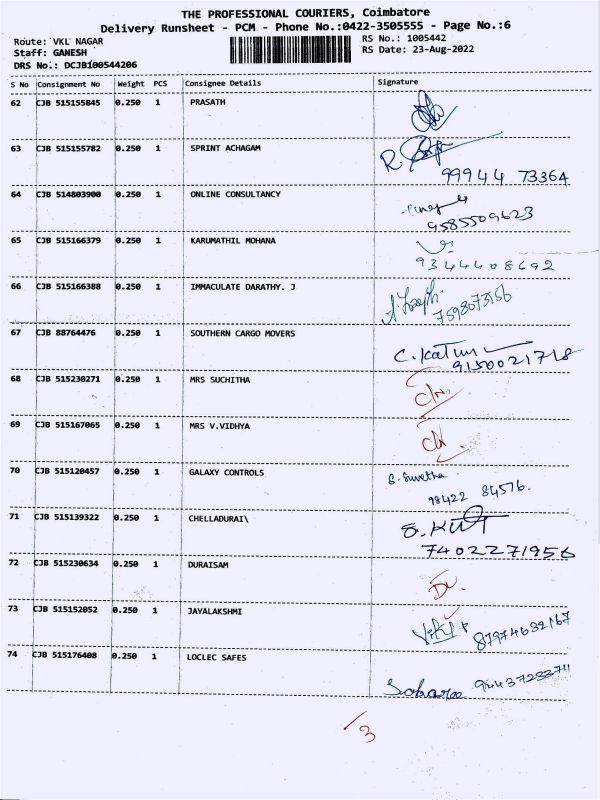 THE PROFESSIONAL COURIERS, Coimbatore
Delivery Runsheet - PCM - Phone No.:0422-3505555 - Page No.:6
Route: VKL NAGAR
RS No.: 1005442
Staff: GANESH
RS Date: 23-Aug-2022
DRS No.: DCJB100544206
S No Consignment No Weight PCS Consignee Details Signature
62 CJB 515155845 0.250 1 PRASATH
63 CJB 515155782 0.250 1 SPRINT ACHAGAM
99944 73364
64 CJB 514803900 0.250 1 ONLINE CONSULTANCY
9585509623
65 CJB 515166379 0.250 1 KARUMATHIL MOHANA
9344408692
66 CJB 515166388 0.250 1 IMMACULATE DARATHY. J
A. Joseph
7598073156
67 CJB 88764476 0.250 1 SOUTHERN CARGO MOVERS
9150021718
68 CJB 515230271 0.250 1 MRS SUCHITHA
69 CJB 515167065 0.250 1 MRS V.VIDHYA
70 CJB 515120457 0.250 1 GALAXY CONTROLS
S. Suvetha
98422 84576.
71 CJB 515139322 0.250 1 CHELLADURAI\
7402271956
72 CJB 515230634 0.250 1 DURAISAM
73 CJB 515152052 0.250 1 JAYALAKSHMI
87974632167
74 CJB 515176408 0.250 1 LOCLEC SAFES
3